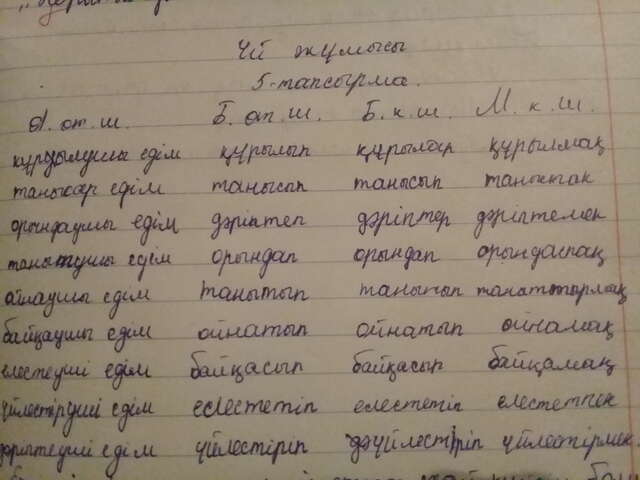 Үй жұмысы
5-тапсырма.
А. өт. ш. Б. өт. ш. Б. к. ш. М. к. ш.
құрылушы едім құрылып құрылар құрылмақ
танысар едім танысып танысып таныспақ
орындаушы едім дәріптеп дәріптер дәріптемек
танытушы едім орындап орындап орындаспақ
ойнаушы едім танытып танытып танаттырмақ
байқаушы едім ойнатып ойнатып ойнамақ
елестеуші едім байқасып байқасып байқамақ
үйлестіруші едім елестетіп елестетіп елестетпек
дәріптеуші едім үйлестіріп үйлестіріп үйлестірмек.